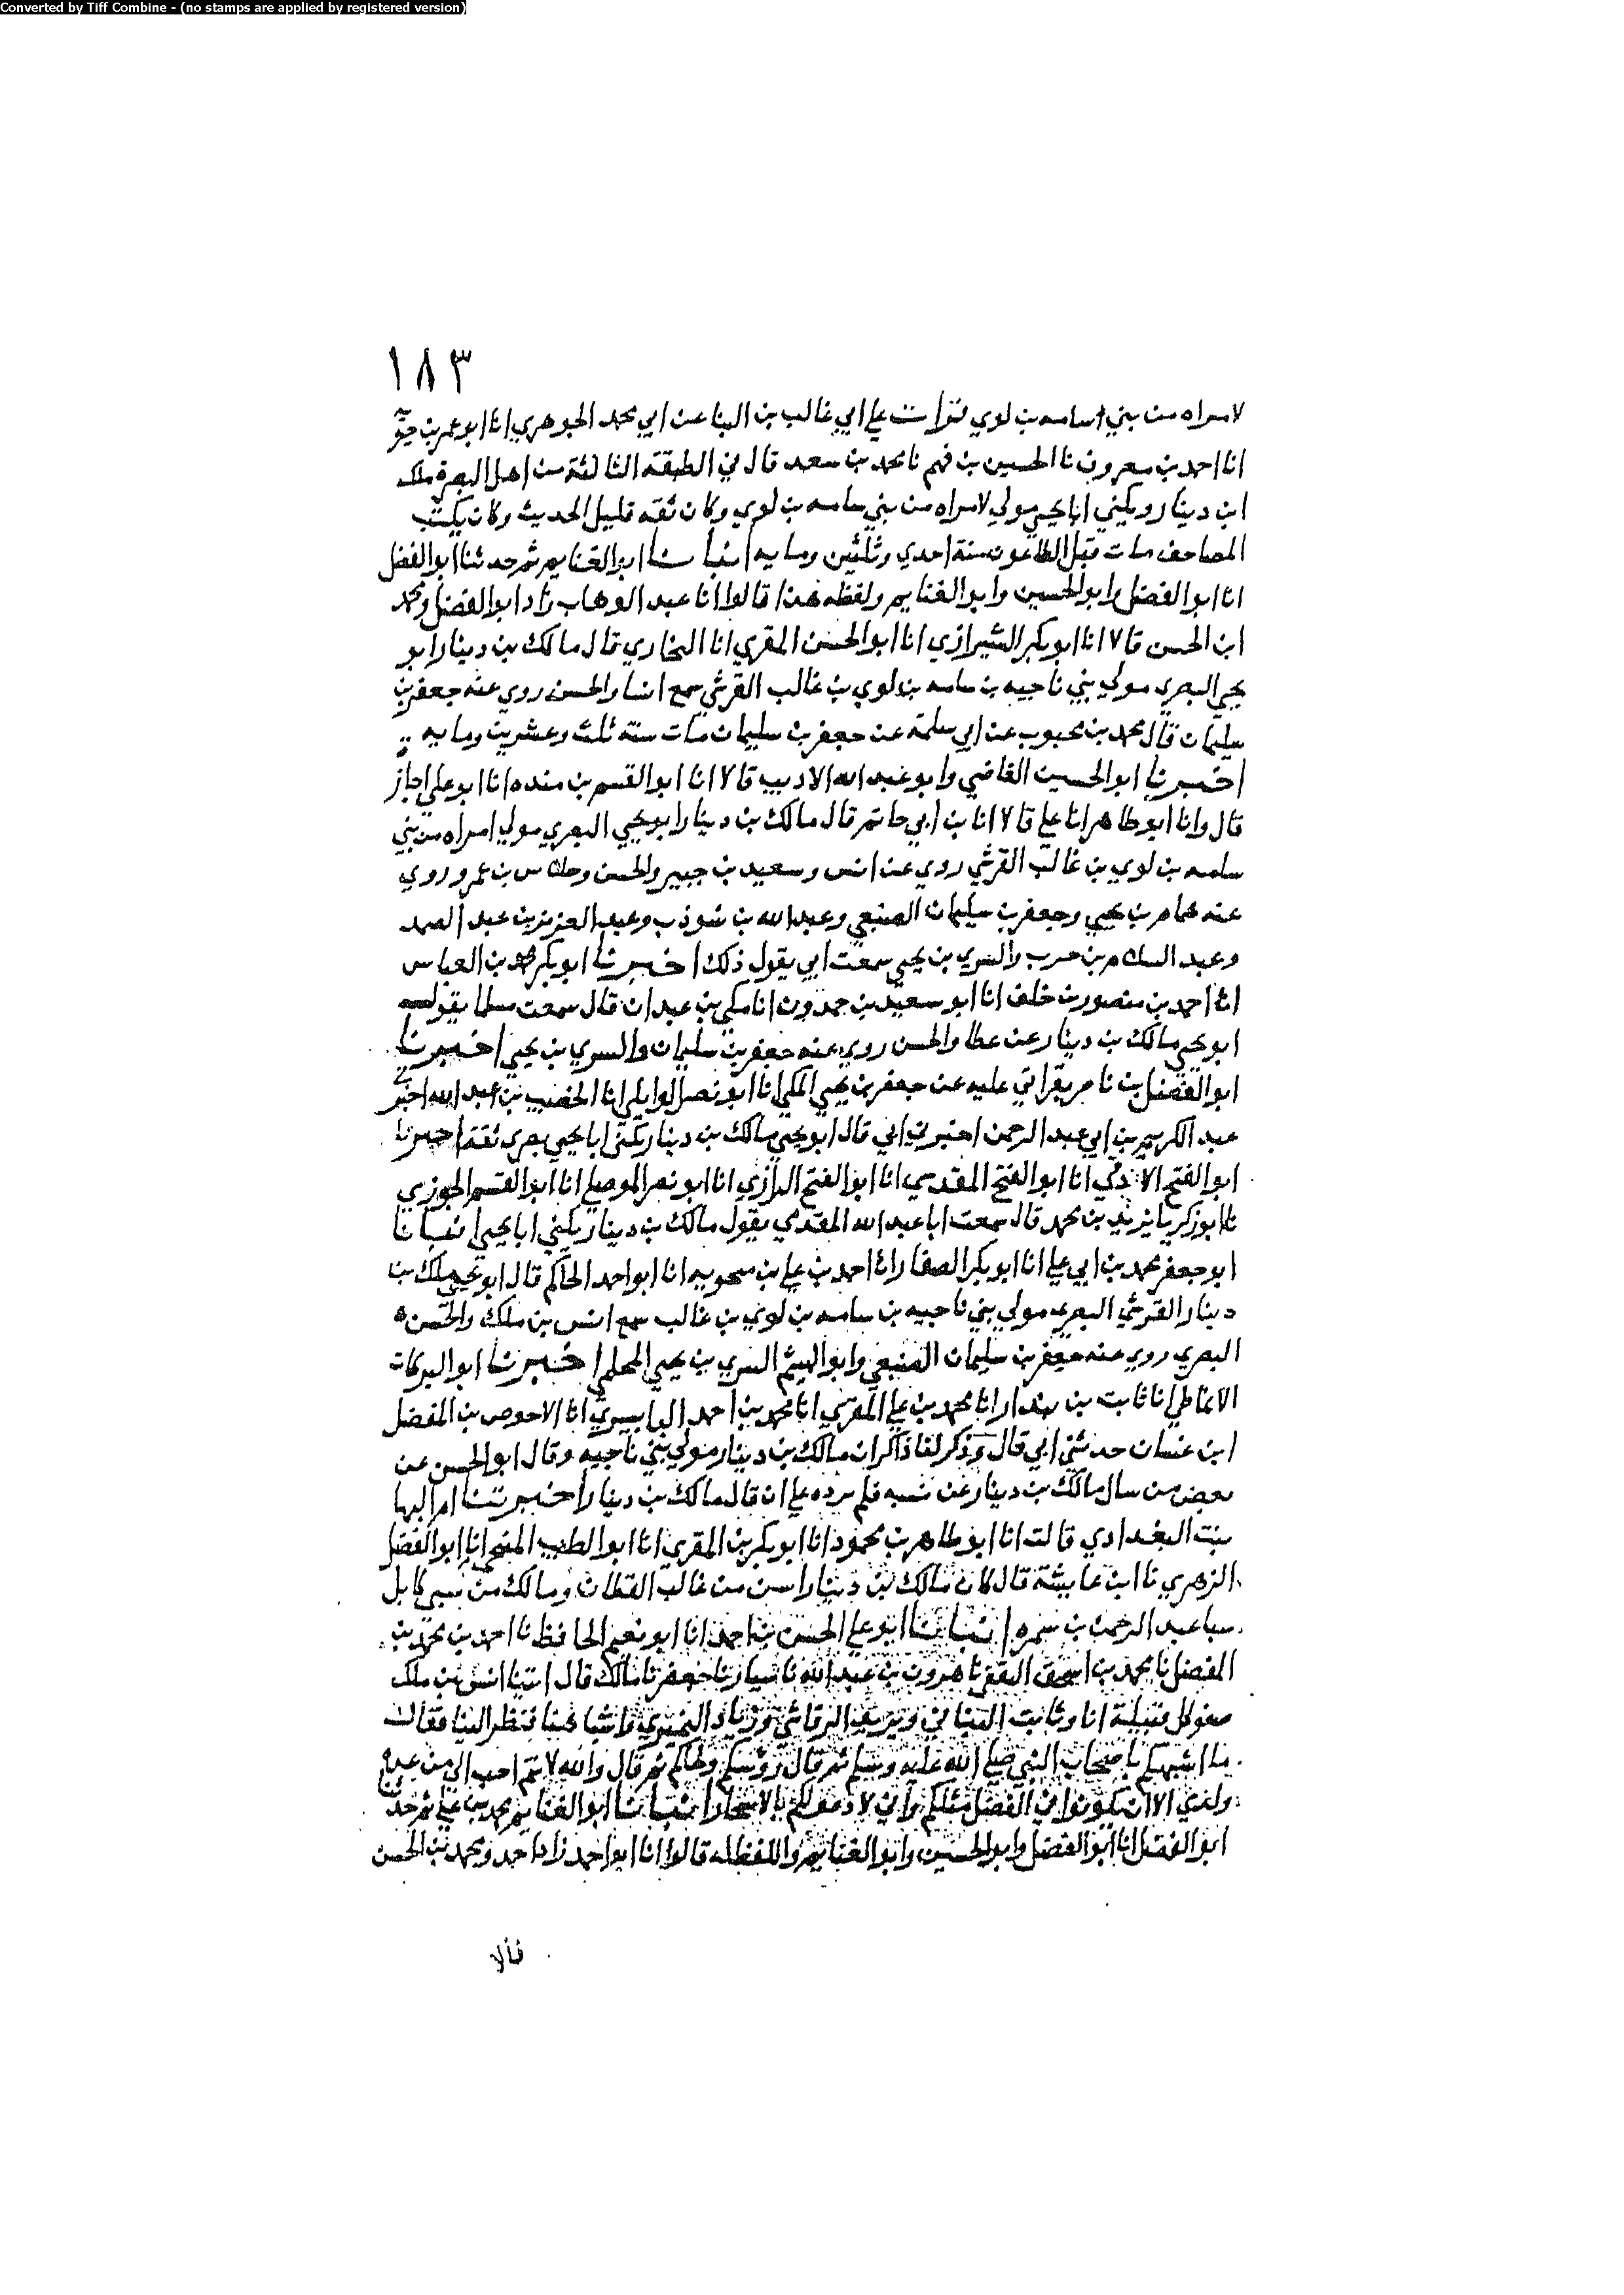 Converted by Tiff Combine - (no stamps are applied by registered version)
١٨٣
لامراه من بني اسامه بن لوي قرات علي ابي غالب بن البنا عن ابي محمد الجوهري انا ابو عمر بن حيو
انا احمد بن معروف نا الحسين بن فهم نا محمد بن سعد قال في الطبقه الثالثة من اهل البصرة ملك
ابن دينار ويكني ابا يحيي مولي لامراه من بني سامه بن لوي وكان ثقه قليل الحديث وكان يكتب
المصاحف مات قبل الطاعون سنة احدي وثلثين ومايه انبانا ابو الغنايم ثم حدثنا ابو الفضل
انا ابو الفضل وابو الحسين وابو الغنايم ولفظه هذا قالوا انا عبد الوهاب زاد ابو الفضل ومحمد
ابن الحسن قالا انا ابو بكر الشيرازي انا ابو الحسن المقري انا البخاري قال مالك بن دينار ابو
يحيي البصري مولي بني ناجيه بن سامه بن لوي بن غالب القرشي سمع انسا والحسن روي عنه جعفر بن
سليمان قال محمد بن محبوب عن ابي سلمة عن جعفر بن سليمان مات سنة ثلث وعشرين ومايه
اخبرنا ابو الحسين القاضي وابو عبد الله الاديب قالا انا ابو القسم بن منده انا ابو علي اجاز
قال وانا ابو طاهر انا علي قالا انا بن ابي حاتم قال مالك بن دينار ابو يحيي البصري مولي امراه من بني
سامه بن لوي بن غالب القرشي روي عن انس وسعيد بن جبير والحسن وخلاس بن عمرو روي
عنه همام بن يحيي وجعفر بن سليمان الضبعي وعبد الله بن شوذب وعبد العزيز بن عبد الصمد
وعبد السلام بن حرب والسري بن يحيي سمعت ابي يقول ذلك اخبرنا ابو بكر محمد بن العباس
انا احمد بن منصور بن خلف انا ابو سعيد بن حمدون انا مكي بن عبدان قال سمعت مسلما يقول
ابو يحيي مالك بن دينار عن عطا والحسن روي عنه جعفر بن سليمان والسري بن يحيي اخبرنا
ابو الفضل بن ناصر بقراتي عليه عن جعفر بن يحيي المكي انا ابو نصر الوايلي انا الخصيب بن عبد الله اخبرني
عبد الكريم بن ابي عبد الرحمن اخبرني ابي قال ابو يحيي مالك بن دينار يكنى ابا يحيي بصري ثقة اخبرنا
ابو الفتح انا ابو الفتح المقدسي انا ابو الفتح الرازي انا ابو نصر الموصلي انا ابو القسم الجوزي
نا ابو زكريا يزيد بن محمد قال سمعت ابا عبد الله المقدمي يقول مالك بن دينار يكني ابا يحيي انبانا
ابو جعفر محمد بن ابي علي انا ابو بكر الصفار انا احمد بن علي بن منجويه انا ابو احمد الحاكم قال ابو يحيي ملك بن
دينار القرشي البصري مولي بني ناجيه بن سامه بن لوي بن غالب سمع انس بن ملك والحسن
البصري روي عنه جعفر بن سليمان الضبعي وابو الهيثم السري بن يحيي المحلمي اخبرنا ابو البركات
الانماطي انا ثابت بن بندار انا محمد بن علي المقرئي انا محمد بن احمد البابسيري انا الاحوص بن المفضل
ابن غسان حدثني ابي قال وذكر لنا ذاكر ان مالك بن دينار مولي بني ناجيه وقال ابو الحسن عن
بعض من سال مالك بن دينار عن نسبه فلم يزده علي ان قال مالك بن دينار اخبرتنا ام البها
بنت البغدادي قالت انا ابو طاهر بن محمود انا ابو بكر بن المقري انا ابو الطيب المنبجي انا ابو الفضل
الزهري نا ابن عايشة قال كان مالك بن دينار اسن من غالب القطان ومالك من سبي كابل
سبا عبد الرحمن بن سمره انبانا ابو علي الحسن بن احمد انا ابو نعيم الحافظ نا احمد بن محمد بن
المفضل نا محمد بن اسحق الثقفي نا هرون بن عبد الله نا سيار نا جعفر نا مالك قال اتينا انس بن ملك
صفو كل قبيلة انا وثابت البناني ويزيد الرقاشي وزياد النميري واشباهنا فنظر الينا فقال
ما اشبهكم باصحاب النبي صلي الله عليه وسلم ثم قال رؤسكم ولحاكم ثم قال والله لانتم احب الي من عده
ولدي الا ان تكونوا في الفضل مثلكم واني لادعو لكم بالاسحار انبانا ابو الغنايم محمد بن علي ثم حدثنا
ابو الفضل انا ابو الفضل وابو الحسين وابو الغنايم واللفظ له قالوا انا ابو احمد زاد احمد ومحمد بن الحسن
قالا